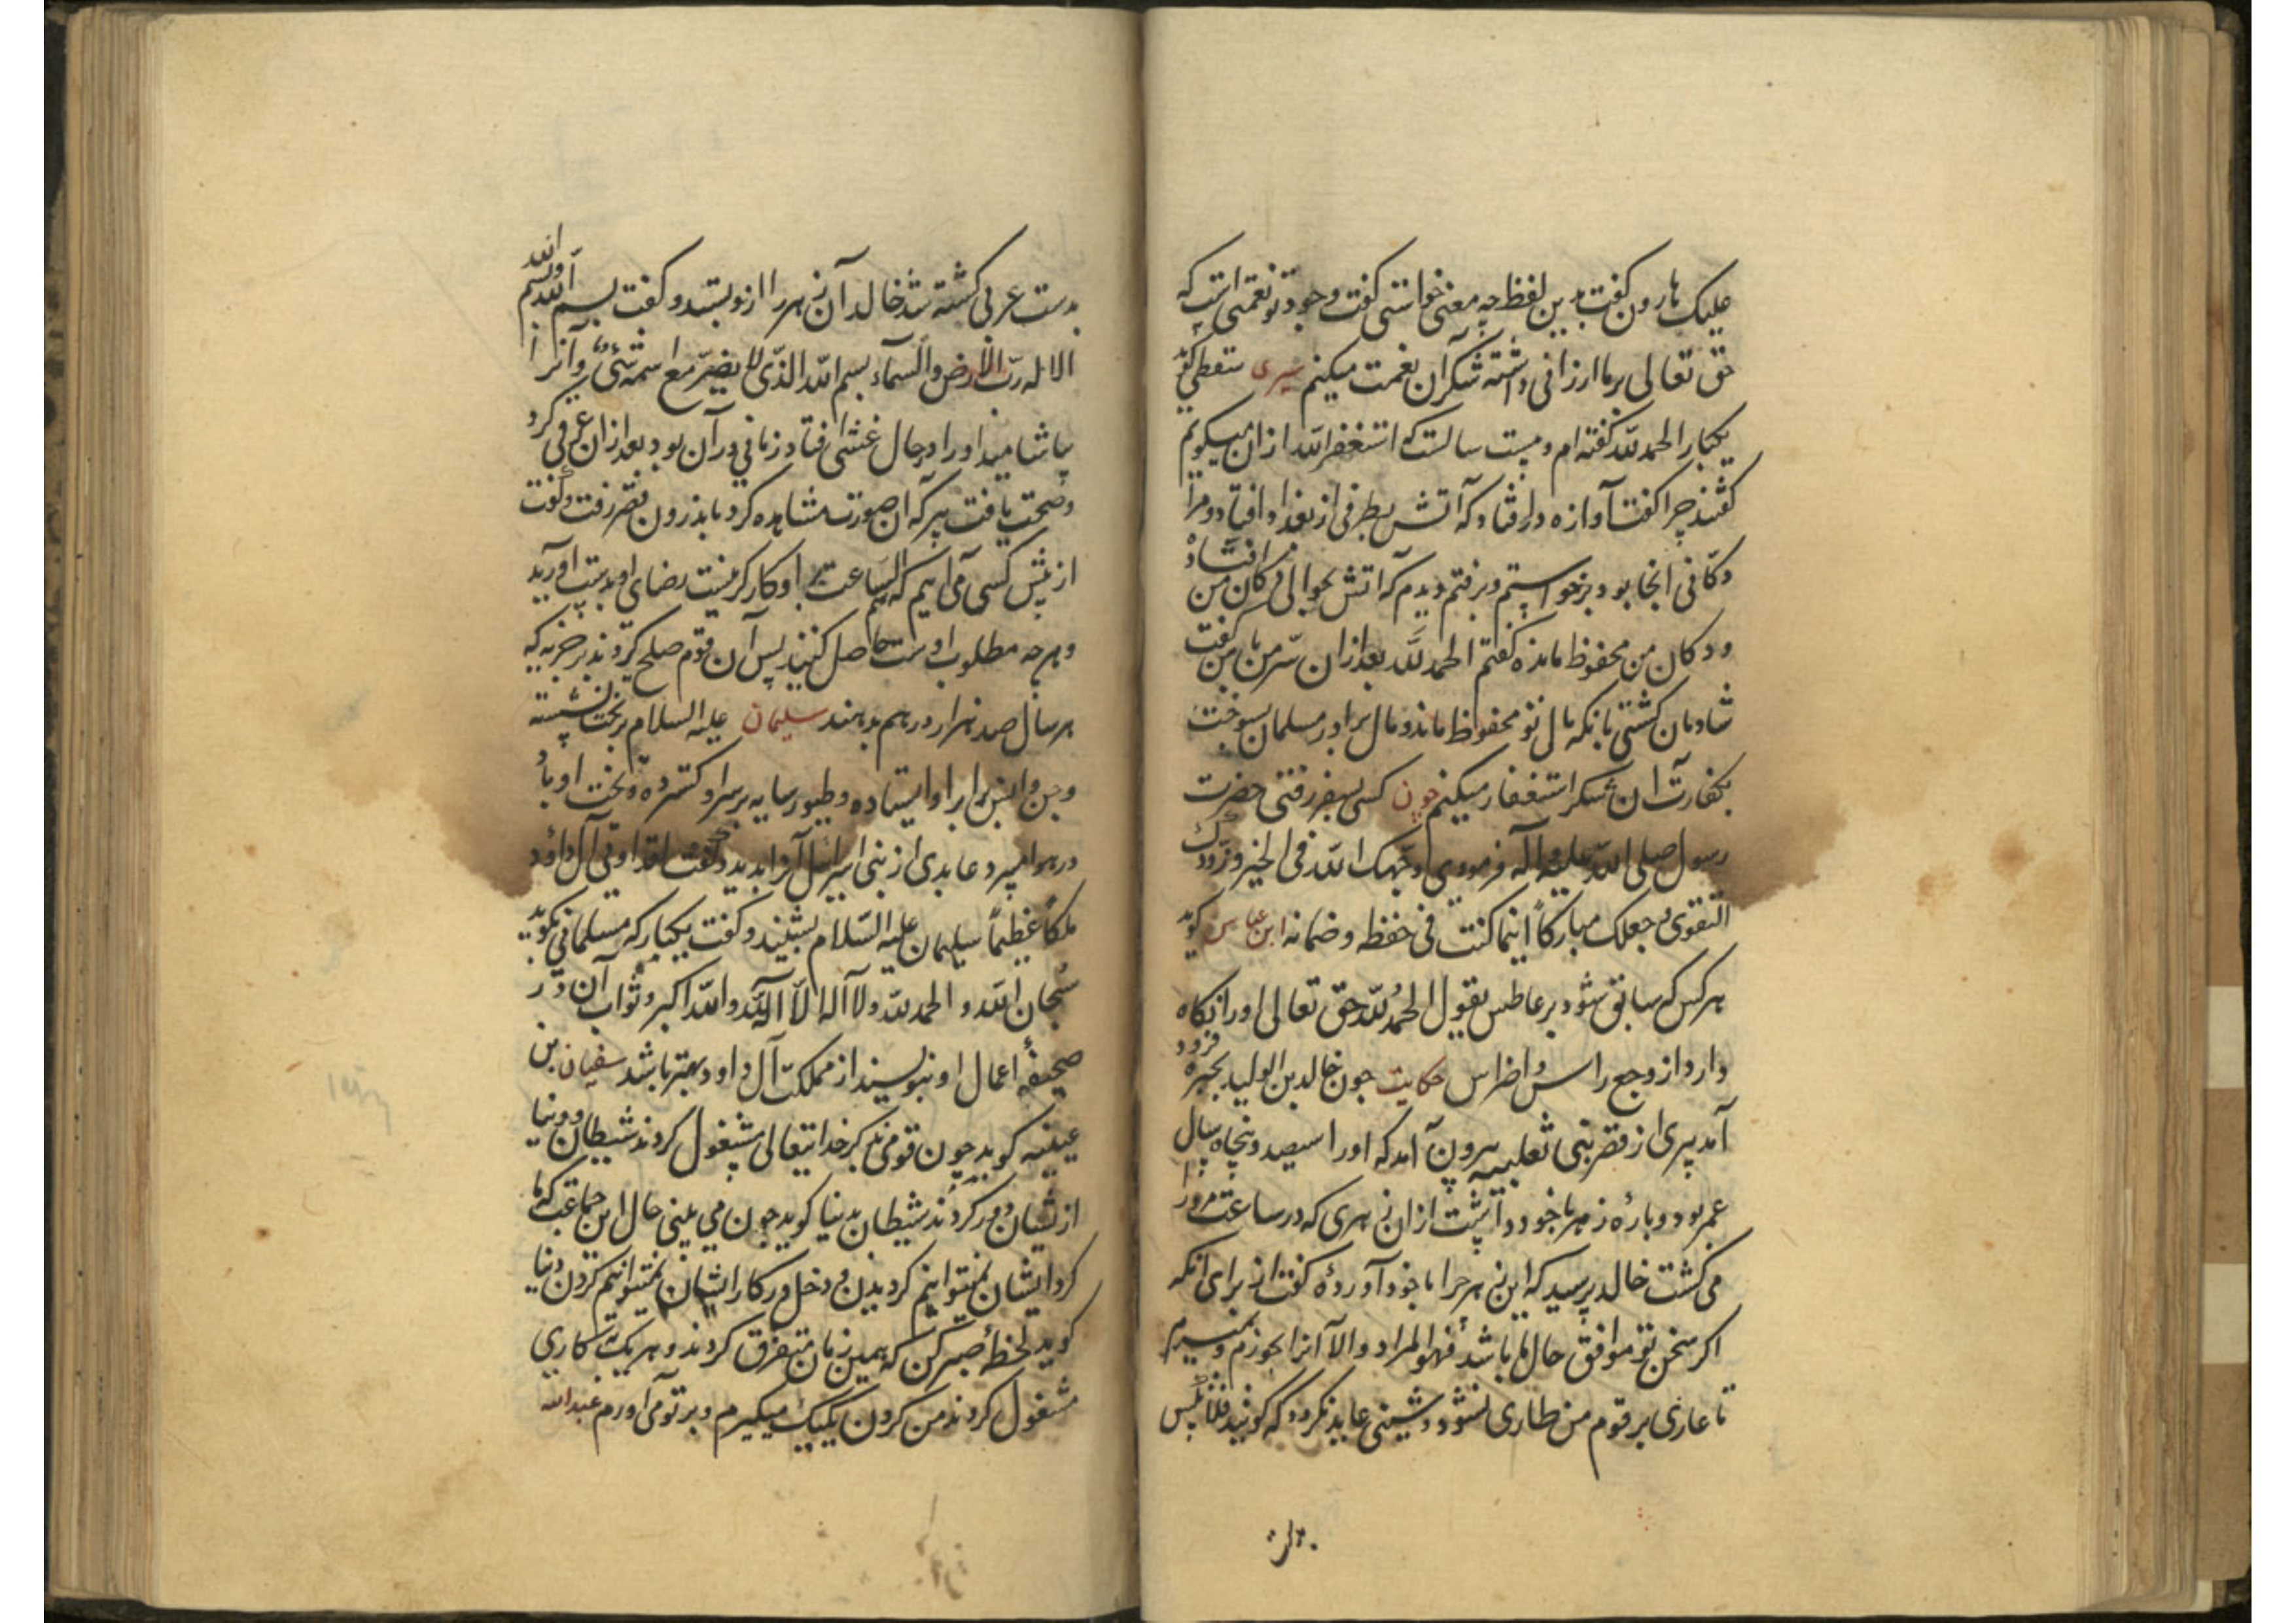 علیک هارون گفت بدین لفظ چه معنی خواستی گفت وجود تو نعمتی است که
حق تعالی بر ما ارزانی داشته شکر آن نعمت میکنم سری سقطی گوید
یکبار الحمد لله گفته ام و بیست سالست که استغفر الله از آن میگویم
گفتند چرا گفت آوازه در افتاد که آتش بطرفی از بغداد افتاد و مرا
دکانی آنجا بود برخواستم و برفتم دیدم که آتش بحوالی دکان من افتاد
و دکان من محفوظ مانده گفتم الحمد لله بعد از آن سر من با من گفت
شادمان گشتی بانکه مال تو محفوظ ماند و مال برادر مسلمان بسوخت
بکفارت آن شکر استغفار میکنم چون کسی بسفر رفتی حضرت
رسول صلی الله علیه و آله فرمودی وجهک الله فی الخیر و زودک
التقوی و جعلک مبارکاً اینما کنت فی حفظه و ضمانه ابن عباس گوید
هر کس که سابق شود بر عاطس بقول الحمد لله حق تعالی او را نگاه
دارد از وجع راس و اضراس حکایت چون خالد بن الولید بحیره فرود
آمد پیری از قصر بنی ثعلبیه بیرون آمد که او را سیصد و پنجاه سال
عمر بود و پارهٔ زهر با خود داشت از آن زهری که در ساعت مرد را
می کشت خالد پرسید که این زهر چرا با خود آوردهٔ گفت از برای آنکه
اگر سخن تو موافق حال ما باشد فهو المراد و الا آنرا بخورم و بمیرم
تا عاری بر قوم من طاری نشود و شینی عاید نگردد که گویند فلان کس
بدست عربی کشته شد خالد آن زهر را از او بستد و گفت بسم الله و بالله
الاله رب الارض و السماء بسم الله الذی لا یضر مع اسمه شیء و آنرا
بیاشامید او را در حال غشی افتاد زمانی در آن بود بعد از آن عرق کرد
و صحت یافت پیر که آن صورت مشاهده کرد باندرون قصر رفت و گفت
از پیش کسی می آیم که سم الساعت با او کارگر نیست رضای او بدست آورید
و هر چه مطلوب اوست حاصل کنید پس آن قوم صلح کردند بر جزیه که
هر سال صد هزار درهم بدهند سلیمان علیه السلام بر تخت نشسته
و جن و انس برابر او ایستاده و طیور سایه بر سر او گسترده و تخت او باد
در هوا میبرد عابدی از بنی اسرائیل آنرا بدید و گفت لقد اوتی آل داود
ملکاً عظیماً سلیمان علیه السلام بشنید و گفت یکبار که مسلمانی بگوید
سبحان الله و الحمد لله ولا اله الا الله و الله اکبر و ثواب آن در
صحیفهٔ اعمال او بنویسند از مملکت آل داود بهتر باشد سفیان بن
عیینه گوید چون قومی بذکر خدایتعالی مشغول گردند شیطان و دنیا
از یشان دور گردند شیطان بدنیا گوید چون می بینی حال این جماعت که ما
گرد ایشان نمیتوانیم گردیدن و دخل در کار ایشان نمیتوانیم کردن دنیا
گوید لحظهٔ صبر کن که همین زمان متفرق گردند و هر یک بکاری
مشغول گردند من گردن یکیک میگیرم و بر تو می آورم عبد الله